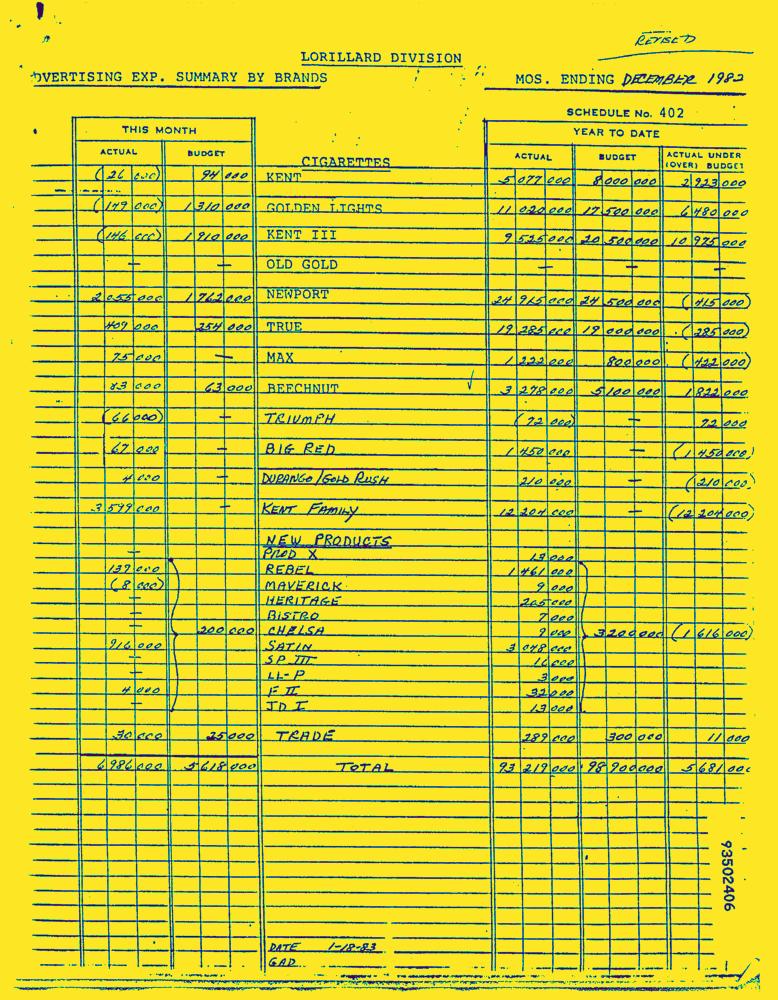 REVISED
LORILLARD DIVISION
DVERTISING EXP. SUMMARY BY BRANDS MOS. ENDING DECEMBER 1982
SCHEDULE No. 402
THIS MONTH YEAR TO DATE
ACTUAL BUDGET CIGARETTES ACTUAL BUDGET ACTUAL UNDER (OVER) BUDGET
(26 000) 94 000 KENT 5 077 000 8 000 000 2 923 000
(149 000) 1 310 000 GOLDEN LIGHTS 11 020 000 17 500 000 6 480 000
(146 000) 1 910 000 KENT III 9 525 000 20 500 000 10 975 000
— — OLD GOLD — — —
2 055 000 1 762 000 NEWPORT 24 915 000 24 500 000 (415 000)
409 000 254 000 TRUE 19 285 000 19 000 000 (285 000)
75 000 — MAX 1 222 000 800 000 (422 000)
83 000 63 000 BEECHNUT ✓ 3 278 000 5 100 000 1 822 000
(66 000) — TRIUMPH (72 000) — 72 000
67 000 — BIG RED 1 450 000 — (1 450 000)
4 000 — DURANGO/GOLD RUSH 210 000 — (210 000)
3 599 000 — KENT FAMILY 12 204 000 — (12 204 000)
NEW PRODUCTS
— PROD X 13 000
139 000 REBEL 1 461 000
(8 000) MAVERICK 9 000
— HERITAGE 205 000
— BISTRO 7 000
— 200 000 CHELSA 9 000 3 200 000 (1 616 000)
916 000 SATIN 3 048 000
— SP III 16 000
— LL-P 3 000
4 000 F II 32 000
— JD I 13 000
30 000 25 000 TRADE 289 000 300 000 11 000
6 986 000 5 618 000 TOTAL 93 219 000 98 900 000 5 681 000
93502406
DATE 1-18-83
GAD